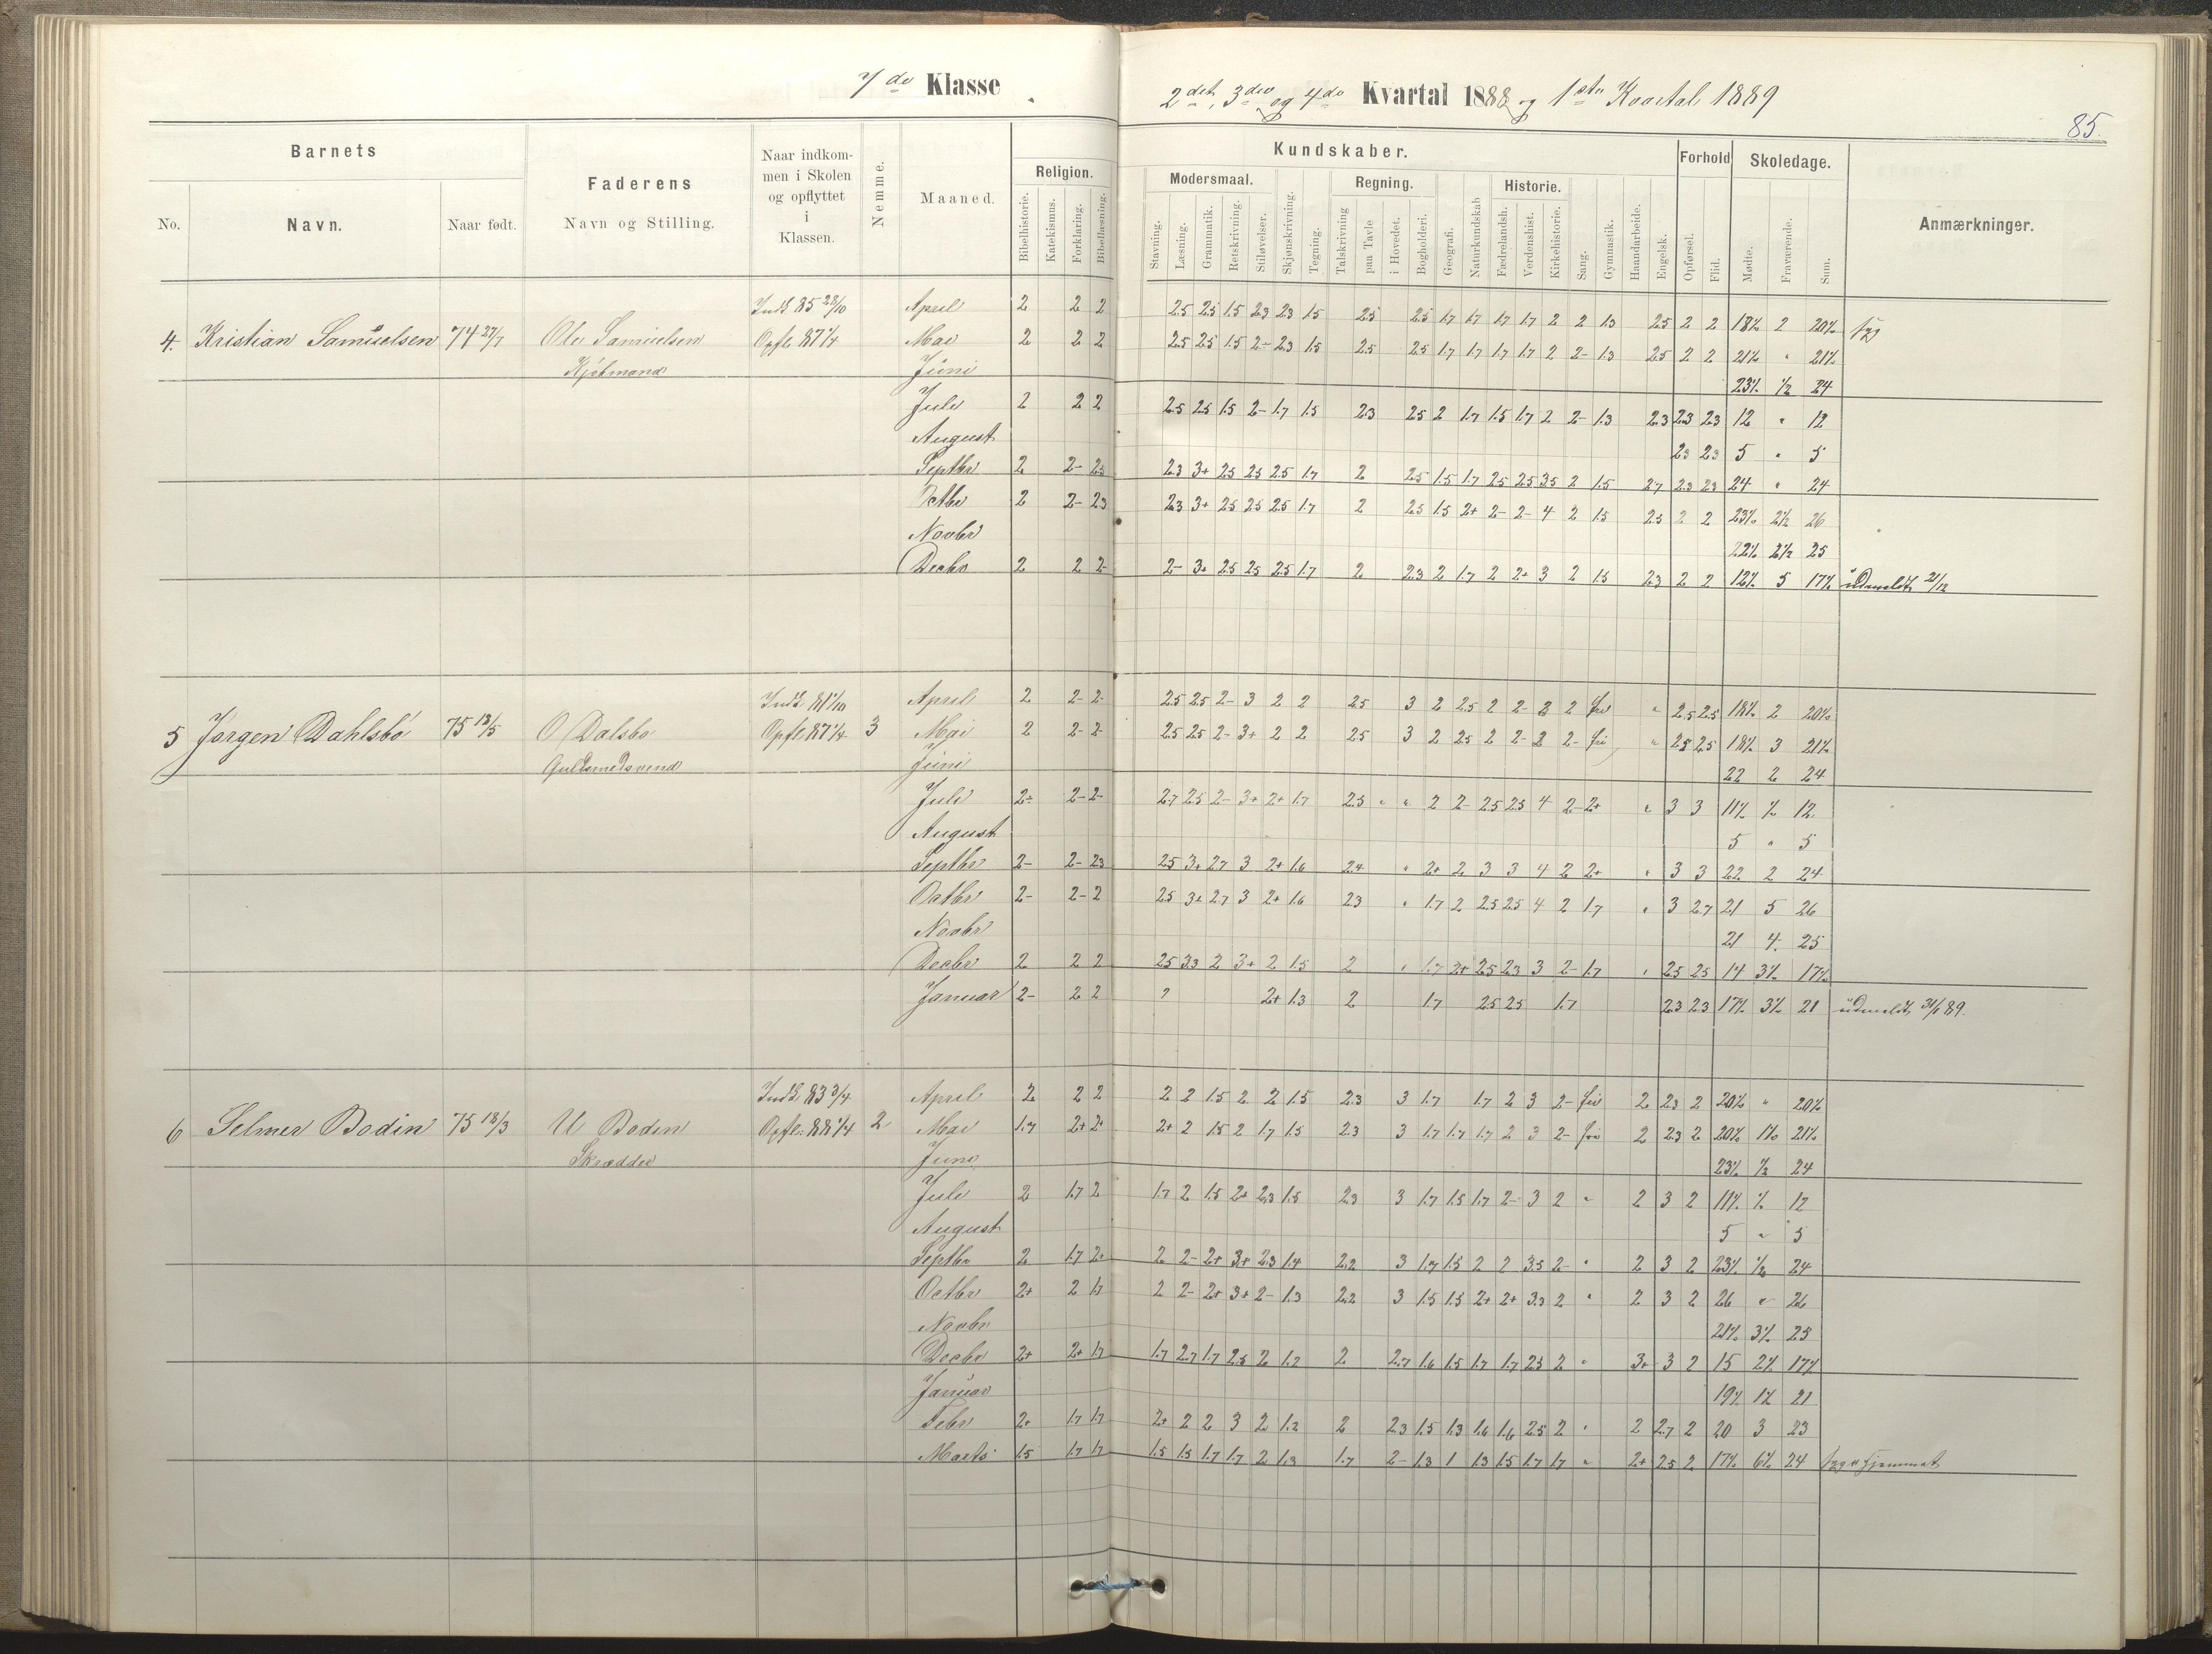 7de Klasse
2det, 3die og 4de Kvartal 1888 og 1ste Kvartal 1889
85.
Barnets
No.
Navn.
Naar født.
Faderens
Navn og Stilling.
Naar indkom-
men i Skolen
og opflyttet
i
Klassen.
Nemme.
Maaned.
Religion.
Bibelhistorie.
Katekismus.
Forklaring.
Bibellæsning.
Kundskaber.
Modersmaal.
Stavning.
Læsning.
Grammatik.
Retskrivning.
Stiløvelser.
Skjønskrivning.
Tegning.
Regning.
Talskrivning
paa Tavle
i Hovedet.
Bogholderi.
Geografi.
Naturkundskab
Historie.
Fædrelandsh.
Verdenshist.
Kirkehistorie.
Sang.
Gymnastik.
Haandarbeide.
Engelsk.
Forhold
Opførsel.
Flid.
Skoledage.
Mødte.
Fraværende.
Sum.
Anmærkninger.
4. Kristian Samuelsen 74 27/7 Ole Samuelsen
Indk. 85 28/10
Opfl. 87 1/4
April 2 2 2 2.5 2.5 1.5 2.3 2.3 1.5 2.5 2.5 1.7 1.7 1.7 1.7 2 2 1.3 2.5 2 2 18½ 2 20½ syg
Mai 2 2 2 2.5 2.5 1.5 2- 2.3 1.5 2.5 2.5 1.7 1.7 1.7 1.7 2 2- 1.3 2.5 2 2 21½ " 21½
Juni 23½ ½ 24
Juli 2 2 2 2.5 2.5 1.5 2- 1.7 1.5 2.3 2.5 2 1.7 1.5 1.7 2 2- 1.3 2.3 2.3 2.3 12 " 12
August 2.3 2.3 5 " 5
Septbr 2 2- 2.3 2.3 3+ 2.5 2.5 2.5 1.7 2 2.5 1.5 1.7 2.5 2.5 3.5 2 1.5 2.7 2.3 2.3 24 " 24
Octbr 2 2- 2.3 2.3 3+ 2.5 2.5 2.5 1.7 2 2.5 1.5 2+ 2- 2- 4 2 1.5 2.5 2 2 23½ 2½ 26
Novbr 22½ 2½ 25
Decbr 2 2 2- 2- 3+ 2.5 2.5 2.5 1.7 2 2.3 2 1.7 2 2+ 3 2 1.5 2.3 2 2 12½ 5 17½ udmeldt 21/12
5 Jørgen Dahlsbø 75 13/5 O Dalsbo
Guldsmedsvend
Indk. 81 1/10
Opfl. 87 1/4 3
April 2 2- 2- 2.5 2.5 2- 3 2 2 2.5 3 2 2.5 2 2- 2 2 fri " 2.5 2.5 18½ 2 20½
Mai 2 2- 2- 2.5 2.5 2- 3+ 2 2 2.5 3 2 2.5 2 2- 2 2- fri " 2.5 2.5 18½ 3 21½
Juni 22 2 24
Juli 2- 2- 2- 2.7 2.5 2- 3+ 2+ 1.7 2.5 " " 2 2- 2.5 2.5 4 2- 2+ " 3 3 11½ ½ 12
August 5 " 5
Septbr 2- 2- 2.3 2.5 3+ 2.7 3 2+ 1.6 2.4 " 2+ 2 3 3 4 2 2+ " 3 3 22 2 24
Octbr 2- 2- 2 2.5 3+ 2.7 3 2+ 1.6 2.3 " 1.7 2 2.5 2.5 4 2 1.7 " 3 2.7 21 5 26
Novbr 21 4 25
Decbr 2 2 2 2.5 3.3 2 3+ 2 1.5 2 " 1.7 2+ 2.5 2.3 3 2- 1.7 " 2.5 2.5 14 3½ 17½
Januar 2- 2 2 2+ 1.3 2 1.7 2.5 2.5 1.7 2.3 2.3 17½ 3½ 21 udmeldt 31/1 89.
6 Selmer Bodin 75 18/3 U Boden
Skrædder
Indk. 83 3/4
Opfl. 88 1/4 2
April 2 2 2 2 2 1.5 2 2 1.5 2.3 3 1.7 1.7 2 3 2- fri 2 2.3 2 20½ " 20½
Mai 1.7 2+ 2+ 2+ 2 1.5 2 1.7 1.5 2.3 3 1.7 1.7 1.7 2 3 2- fri 2 2.3 2 20½ 1½ 21½
Juni 23½ ½ 24
Juli 2 1.7 2 1.7 2 1.5 2+ 2.3 1.5 2.3 3 1.7 1.5 1.7 2- 3 2 " 2 3 2 11½ ½ 12
August 5 " 5
Septbr 2 1.7 2+ 2 2- 2+ 3+ 2.3 1.4 2.2 3 1.7 1.5 2 2 3.5 2- " 2 3 2 23½ ½ 24
Octbr 2+ 2 1.7 2 2- 2+ 3+ 2- 1.3 2.2 3 1.5 1.5 2+ 2+ 3.3 2 " 2 3 2 26 " 26
Novbr 21½ 3½ 25
Decbr 2+ 2+ 1.7 1.7 2.7 1.7 2.5 2 1.2 2 2.7 1.6 1.5 1.7 1.7 2.3 2 " 3+ 3 2 15 2½ 17½
Januar 19½ 1½ 21
Febr 2+ 1.7 1.7 2+ 2 2 3 2 1.2 2 2.3 1.5 1.3 1.6 1.6 2.5 2 " 2 2.7 2 20 3 23
Marts 1.5 1.7 1.7 1.5 1.5 1.7 1.7 2 1.3 1.7 2- 1.3 1 1.3 1.5 1.7 1.7 " 2+ 2.5 2 17½ 6½ 24